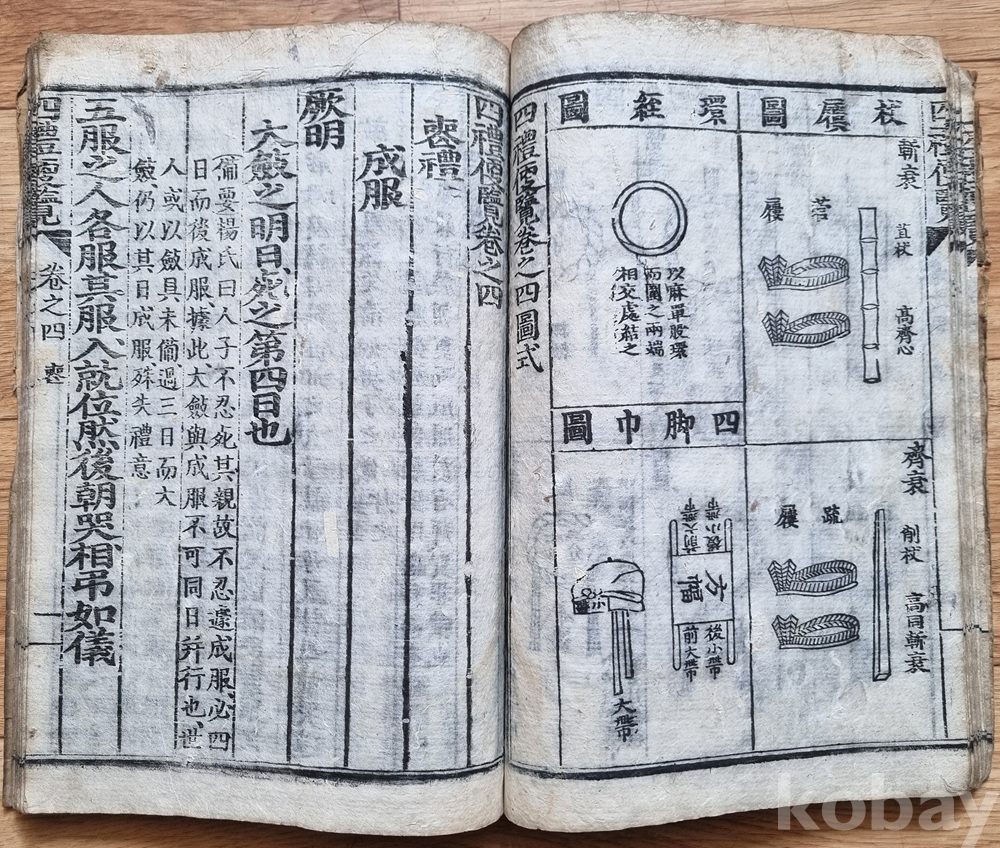 四禮便覽
杖屨圖
斬衰
苴杖
高齊心
菅屨
齊衰
削杖
高同斬衰
疏屨
環絰圖
以麻單股環
而圍之兩端
相交處結之
四脚巾圖
方幅
後小帶
前大帶
後小帶
前大帶
大帶
四禮便覽卷之四圖式
四禮便覽卷之四
喪禮
成服
厥明
大斂之明日死之第四日也
備要楊氏曰人子不忍死其親故不忍遽成服必四
日而後成服據此大斂與成服不可同日并行也世
人或以斂具未備過三日而大
斂仍以其日成服殊失禮意
五服之人各服其服入就位然後朝哭相弔如儀
四禮便覽 卷之四 喪
kobay